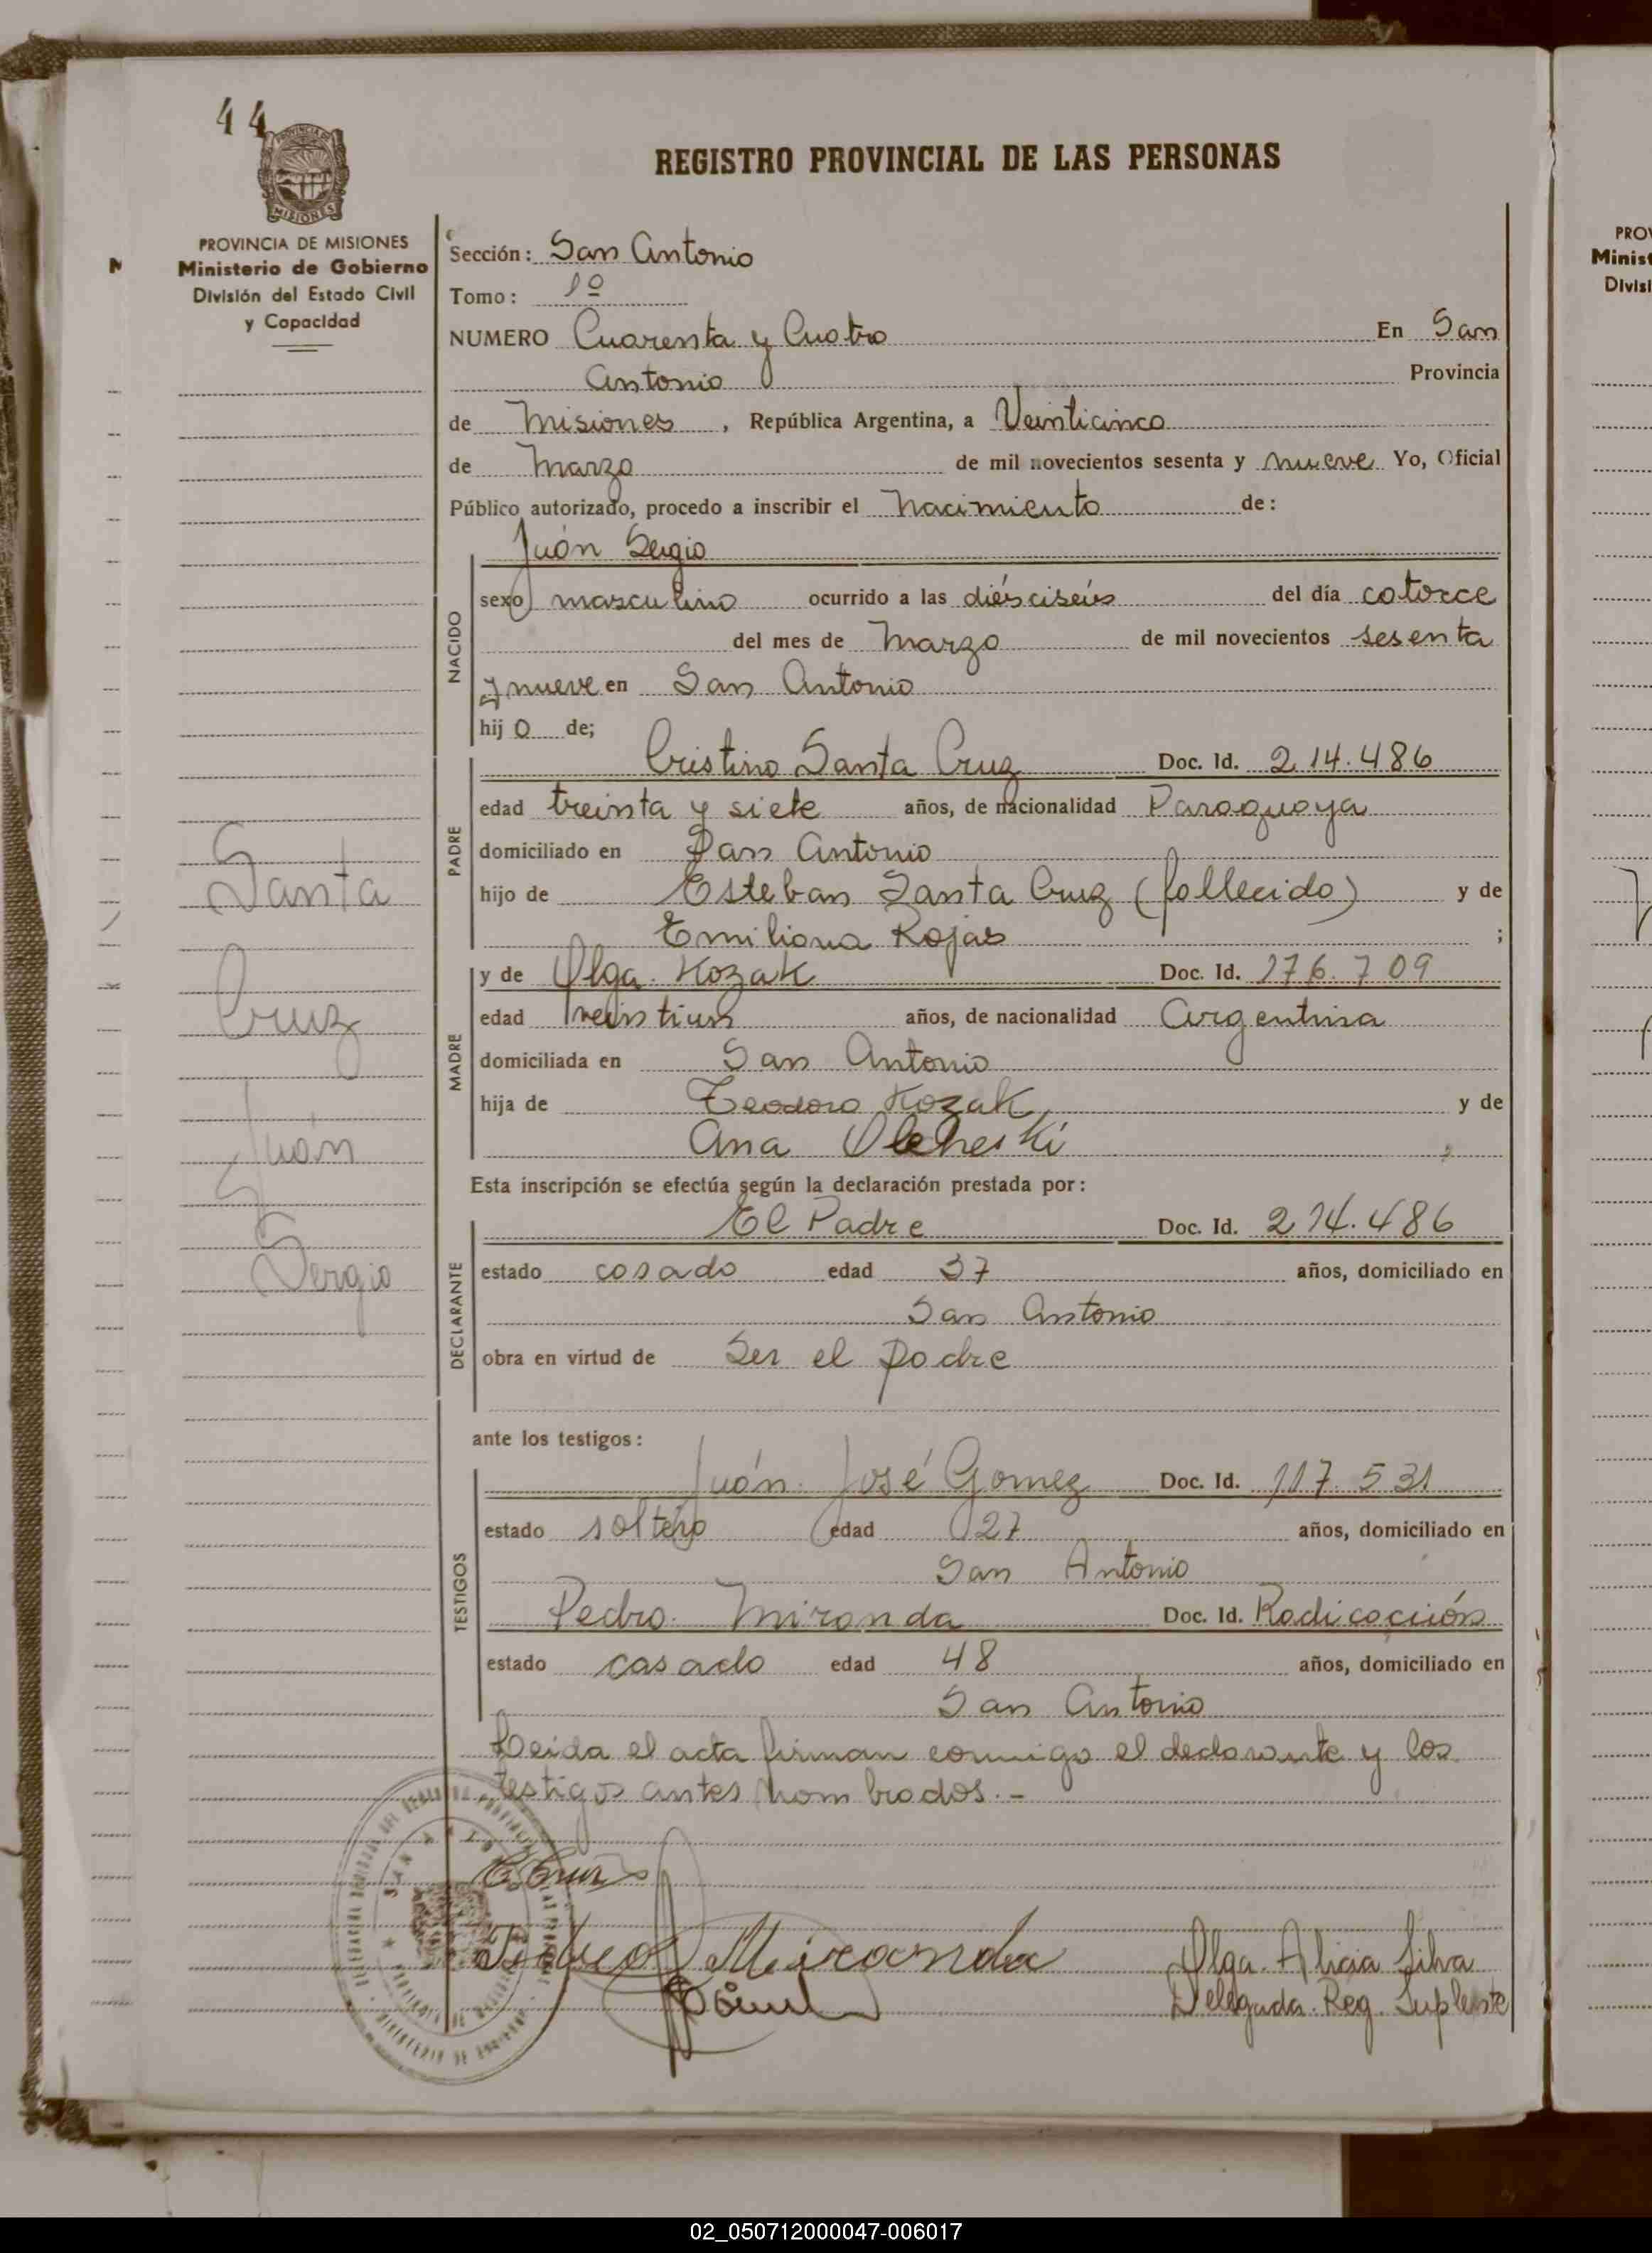 44
PROVINCIA DE MISIONES
Ministerio de Gobierno
División del Estado Civil
y Capacidad
REGISTRO PROVINCIAL DE LAS PERSONAS
Sección: San Antonio
Tomo: 1º
NUMERO Cuarenta y Cuatro En San
Antonio Provincia
de Misiones, República Argentina, a Veinticinco
de Marzo de mil novecientos sesenta y nueve Yo, Oficial
Público autorizado, procedo a inscribir el nacimiento de:
Juán Sergio
NACIDO
sexo masculino ocurrido a las diésciséis del día catorce
del mes de Marzo de mil novecientos sesenta
y nueve en San Antonio
hijo de;
PADRE
Cristino Santa Cruz Doc. Id. 214.486
edad treinta y siete años, de nacionalidad Paraguaya
domiciliado en San Antonio
hijo de Esteban Santa Cruz (fallecido) y de
Emiliana Rojas ;
MADRE
y de Olga Kozak Doc. Id. 176.709
edad años, de nacionalidad Argentina
domiciliada en San Antonio
hija de Teodoro Kozak y de
Ana
Esta inscripción se efectúa según la declaración prestada por:
DECLARANTE
El Padre Doc. Id. 214.486
estado casado edad 37 años, domiciliado en
San Antonio
obra en virtud de Ser el padre
ante los testigos:
TESTIGOS
Juán José Gomez Doc. Id. 117.531
estado soltero edad 27 años, domiciliado en
San Antonio
Pedro Miranda Doc. Id. Radicación
estado casado edad 48 años, domiciliado en
San Antonio
Leida el acta firman conmigo el declarante y los
testigos antes nombrados.-
Santa
Cruz
Juán
Sergio
Pedro Miranda
Olga Alicia Silva
Delegada Reg. Suplente
02_050712000047-006017